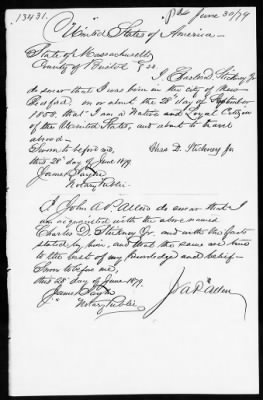 13431. June 30/79
United States of America
State of Massachusetts
County of Bristol ss.
I Charles D. Stickney Jr
do swear that I was born in the city of New
Bedford, on or about the 28th day of September
1858, that I am a Native and Loyal Citizen
of the United States, and about to travel
abroad—
Sworn to before me, Chas D. Stickney Jr
this 28th day of June 1879.
James Taylor
Notary Public.
I John A P Allen do swear that I
am acquainted with the above named
Charles D. Stickney Jr. and with the facts
stated by him, and that the same are true
to the best of my Knowledge and belief—
Sworn to before me,
this 28th day of June 1879. J A P Allen
James Taylor
Notary Public